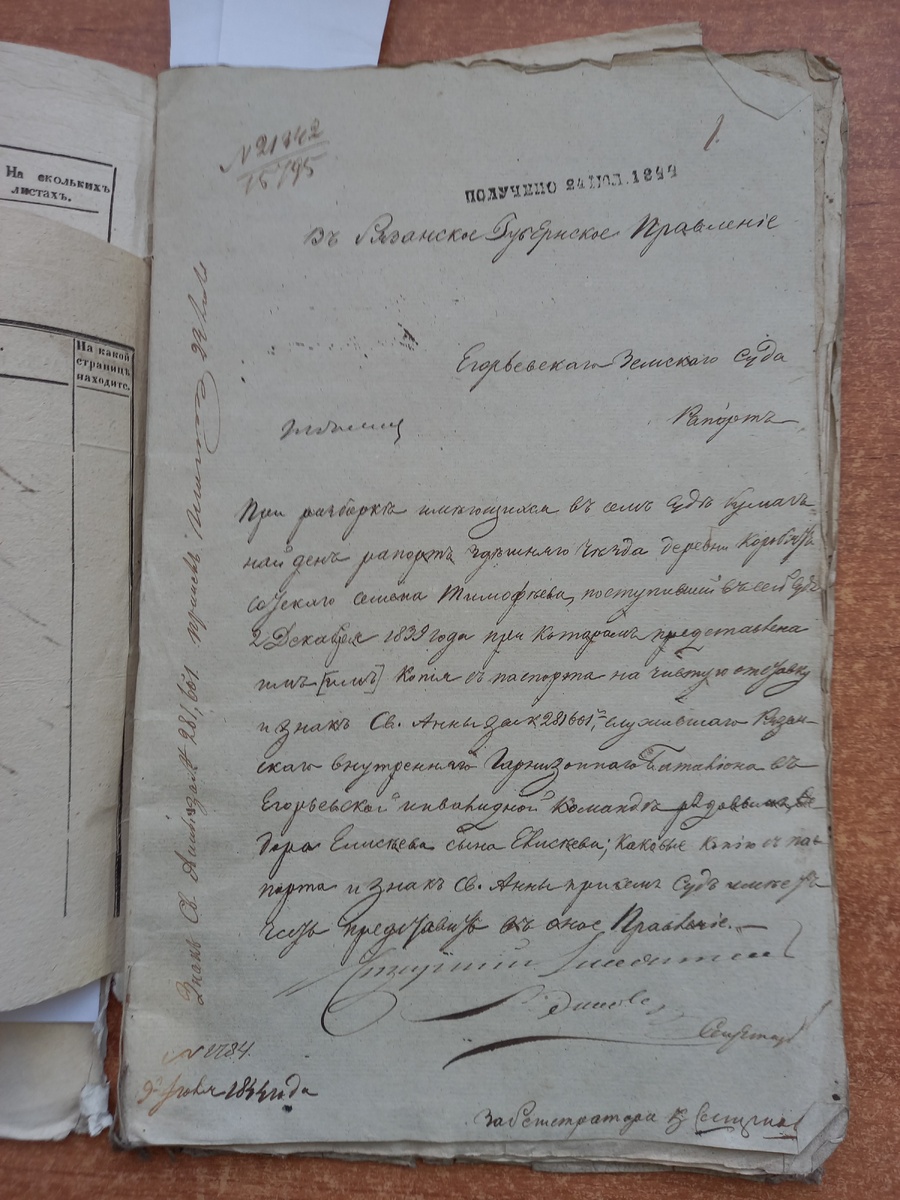 На сколькихъ
листахъ.
На какой
страницѣ
находится.
№ 21842
15795
1.
ПОЛУЧЕНО 24 ІЮЛ. 1844
Въ Рязанское Губернское Правленіе
Егорьевскаго Земскаго Суда
Рапортъ
При разборкѣ имѣющихся въ семъ Судѣ бумагъ
найденъ рапортъ здѣшняго уѣзда деревни
Семена Тимофѣева, поступившій въ сей Судъ
2 Декабря 1839 года при которомъ представлена
имъ [имъ] копія съ паспорта на чистую отставку
и знакъ Св. Анны за № 281661, служившаго Рязан-
скаго внутренняго Гарнизоннаго Баталіона въ
Егорьевской инвалидной командѣ рядовымъ Ѳе-
дора Елисѣева сына Елисѣева; каковые копію съ пас-
порта и знакъ Св. Анны при семъ Судъ имѣетъ
честь представить въ оное Правленіе.
Секретарь
№ 1784.
9 1844 года
За Регистратора
Знакъ Св. Анны за № 281,661. принялъ 24 Іюля